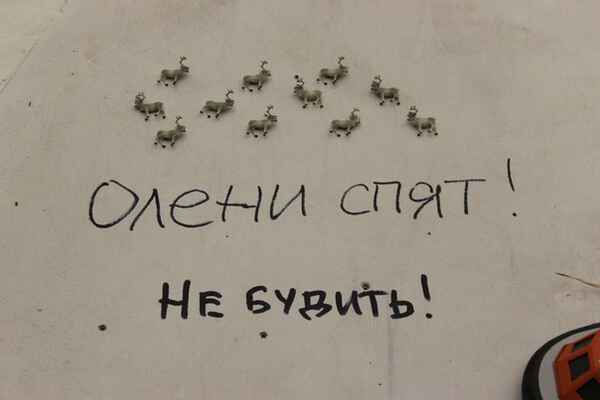 Олени спят!
Не будить!